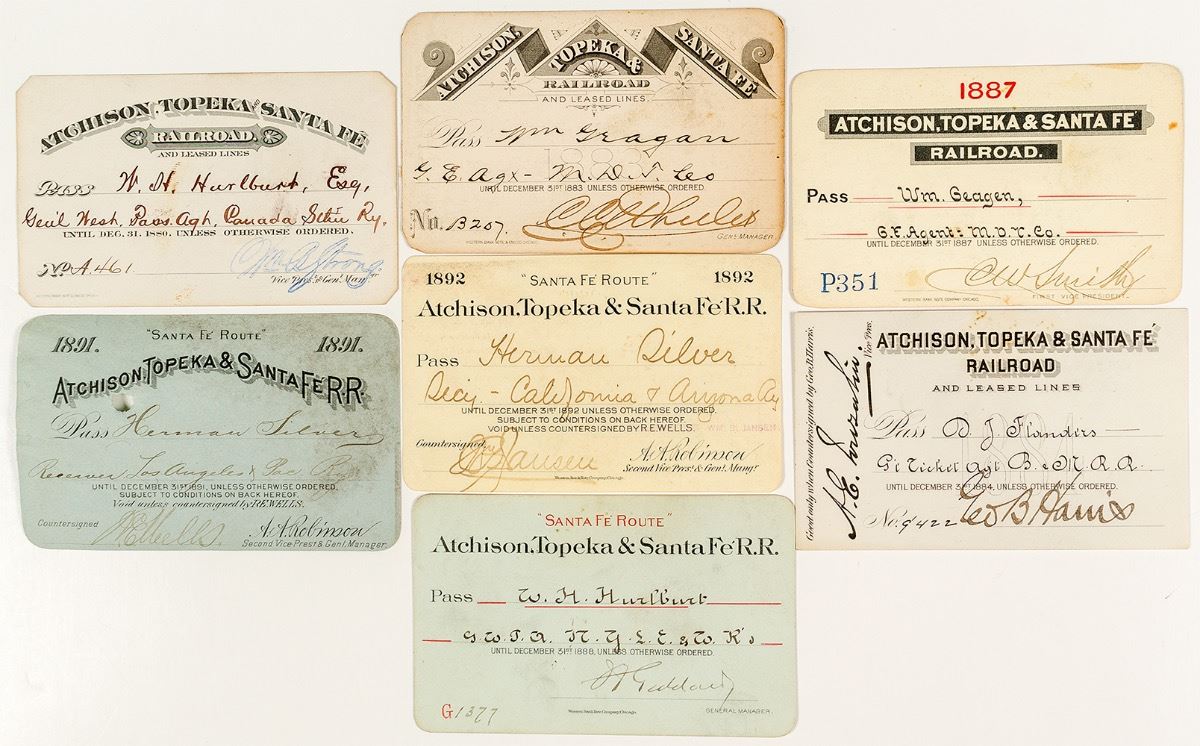 ATCHISON, TOPEKA AND SANTA FÉ
RAILROAD.
AND LEASED LINES
Pass W. H. Hurlburt, Esq,
Gen'l West. Pass. Agt, Canada Sthn Ry.
UNTIL DEC. 31. 1880, UNLESS OTHERWISE ORDERED.
No. A.461
Wm B Strong
Vice Pres. & Gen'l Man'gr
ATCHISON, TOPEKA & SANTA FE
RAILROAD
AND LEASED LINES.
Pass Wm Geagan
G. E. Agt - M. D. T. Co
UNTIL DECEMBER 31ST 1883 UNLESS OTHERWISE ORDERED.
No. B207. C C Wheeler
GENL MANAGER
1887
ATCHISON, TOPEKA & SANTA FÉ
RAILROAD.
Pass Wm. Geagen,
G. F. Agent - M. D. T. Co.
UNTIL DECEMBER 31ST 1887 UNLESS OTHERWISE ORDERED.
P351 C W Smith
WESTERN BANK NOTE COMPANY CHICAGO. FIRST VICE PRESIDENT.
"SANTA FÉ ROUTE"
1891. 1891.
ATCHISON, TOPEKA & SANTA FE R.R.
Pass Herman Silver
Receiver, Los Angeles & Pac. Ry
UNTIL DECEMBER 31ST 1891, UNLESS OTHERWISE ORDERED.
SUBJECT TO CONDITIONS ON BACK HEREOF.
Void unless countersigned by R.E.WELLS.
Countersigned
R E Wells. A. A. Robinson
Second Vice Prest & Genl. Manager.
1892 "SANTA FÉ ROUTE" 1892
Atchison, Topeka & Santa Fé R.R.
Pass Herman Silver
Secy. - California & Arizona Ry
UNTIL DECEMBER 31ST 1892 UNLESS OTHERWISE ORDERED.
SUBJECT TO CONDITIONS ON BACK HEREOF.
VOID UNLESS COUNTERSIGNED BY R.E.WELLS.
WM. B. JANSEN
Countersigned
Jansen A. A. Robinson
Second Vice Prest. & Genl. Mangr.
Western Bank Note Company Chicago.
Good only when Countersigned by Geo. B. Harris.
Vice Pres.
ATCHISON, TOPEKA & SANTA FÉ
RAILROAD
AND LEASED LINES
1884
Pass D. J. Flanders
Gl Ticket Agt B. & M. R. R.
UNTIL DECEMBER 31ST 1884, UNLESS OTHERWISE ORDERED.
No. 9422 Geo B Harris
"SANTA FÉ ROUTE"
Atchison, Topeka & Santa Fé R.R.
Pass W. H. Hurlburt
G W. P. A. N. Y. L. E. & W. R'd
UNTIL DECEMBER 31ST 1888, UNLESS OTHERWISE ORDERED.
G1377
Western Bank Note Company Chicago. GENERAL MANAGER.